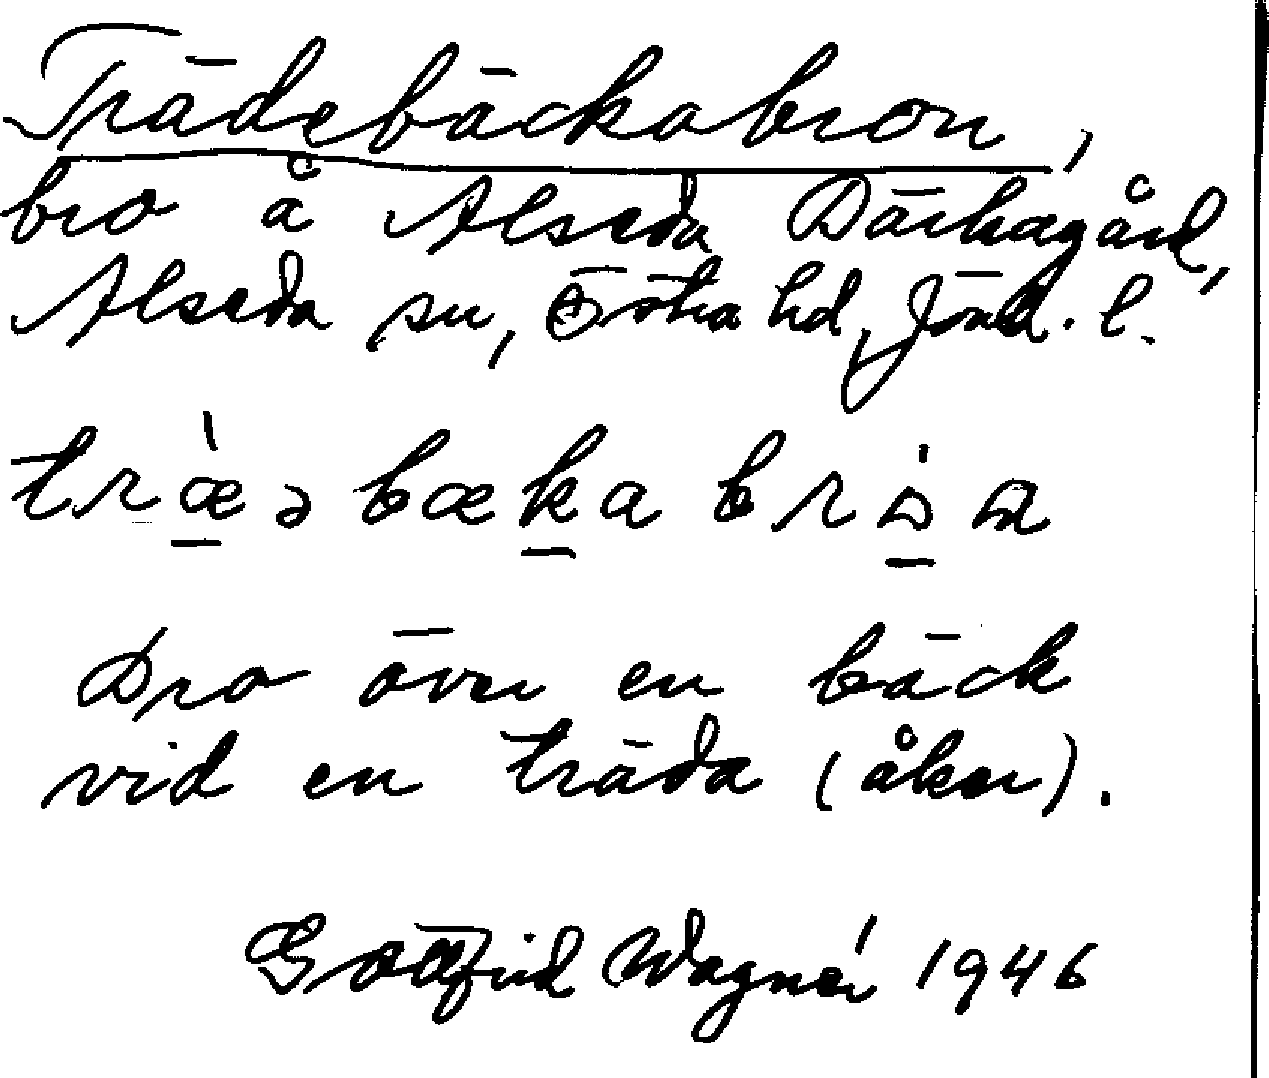 Trädebäckabron,
bro å Alseda
Alseda sn, Östra hd, Jönk. l.
træ̀əbækabrɷ́a
Bro över en bäck
vid en träda (åker).
Gottfrid Wagnér 1946